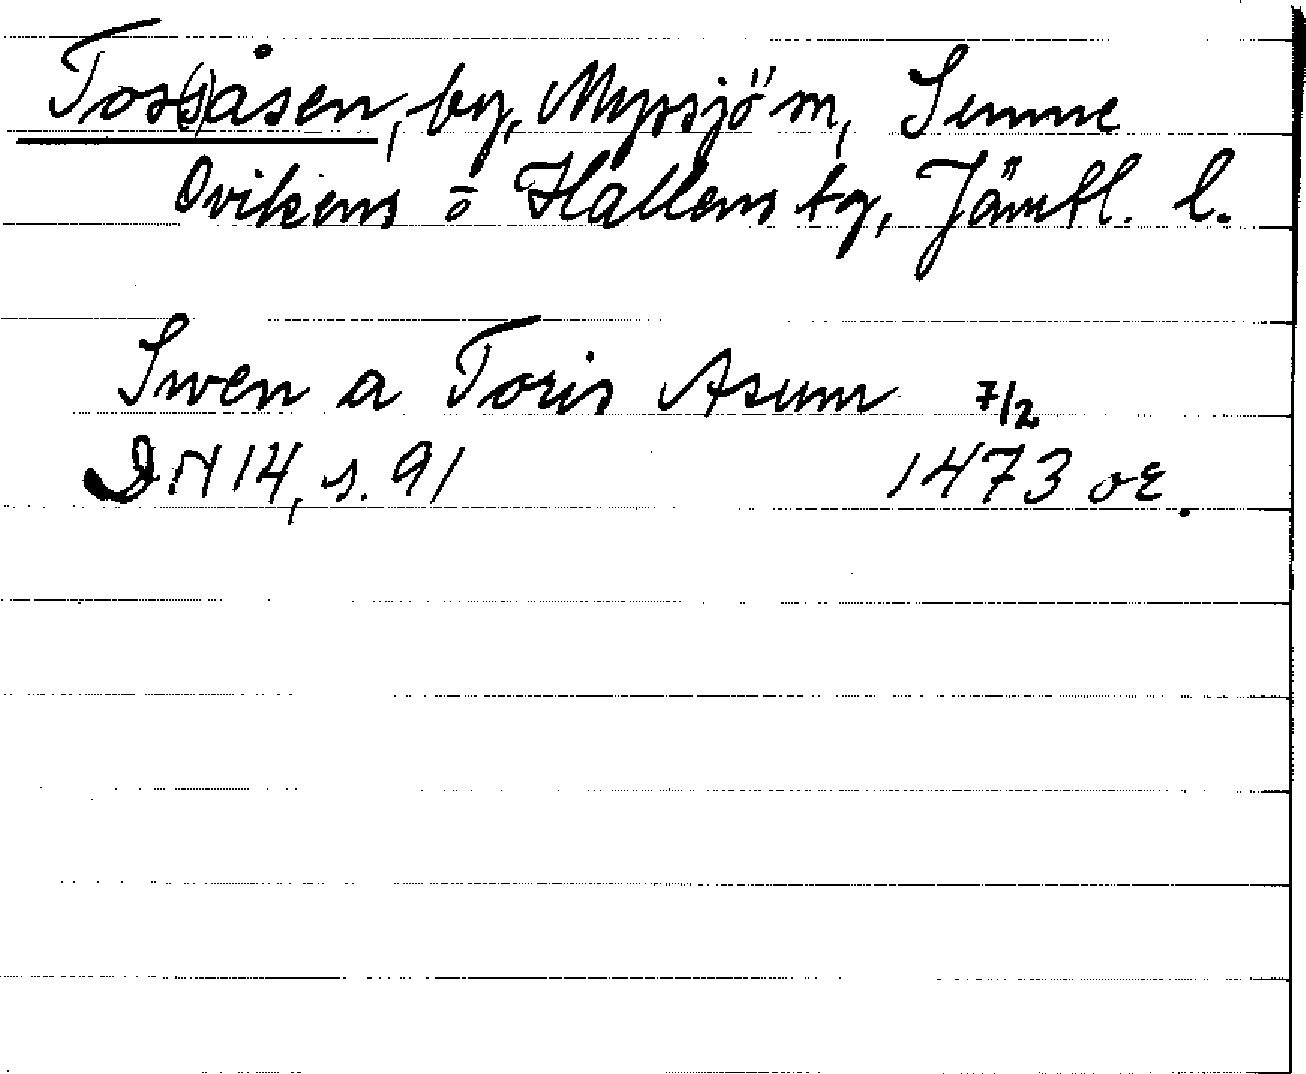 Tos(s)åsen, by, Myssjö sn, Sunne
Ovikens o Hallens tg, Jämtl. l.
Swen a Toris Asum 7/2
DN 14, s. 91 1473 or.